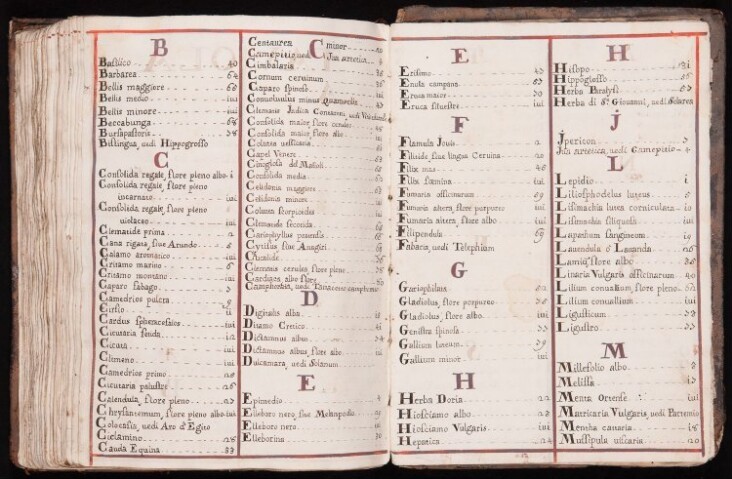 B
Basilico 40
Barbarea 64
Bellis maggiore 66
Bellis medio iui
Bellis minore iui
Beccabunga 68
Bursapastoris 38
Bislingua, uedi Hippogrosso
C
Consolida regale, flore pleno albo i
Consolida regale, flore pleno
incarnato iui
Consolida regale, flore pleno
uiolaceo iui
Clematide prima 2
Cana rigata, siue Arundo 5
Calamo aromatico iui
Critamo marino 6
Critamo montano iui
Caparo fabago 3
Camedrios pulcra 9
Cirsio ii
Cardus sphaerocefalus iui
Cicutaria fetida 12
Cicuta iui
Climeno iui
Camedrios primo 20
Cicutaria palustre 26
Calendula, flore pleno 27
Chrysantemum, flore pleno albo iui
Colocasia, uedi Aro d'Egitto
Ciclamino 28
Cauda Equina 33
C
Centaurea minor
Camepitio, uedi Iua artetica
Cimbalaria
Cornum ceruinum 36
Caparo spinoso iui
Conuoluulus minus Quamoclit 43
Clematis Indica
Consolida maior, flore ceruleo
Consolida maior, flore albo iui
Colutea uessicaria
Capel Venere 63
Cinoglosa del Matioli
Consolida media 63
Celidonia maggiore 63
Celidonia minore iui
Colutea scorpioides iui
Clematide seconda
Cariophyllus pratensis 66
Cytisus siue Anagiri 69
Clematis cerulea, flore pleno
Cardiaca albo flore
Camphorata, uedi Tanacetum camphorato
D
Digitalis alba ii
Ditamo Cretico ii
Dictamnus albus 34
Dictamnus albus, flore albo iui
Dulcamara, uedi Solanum
E
Epimedio 4
Elleboro nero, siue Melampodio
Elleboro nero 16
Elleborina 30
E
Erisimo 43
Enola campana
Eruca maior 70
Eruca siluestre iui
F
Flamula Iouis 2
Fillitide siue lingua Ceruina 20
Filix mas 46
Filix foemina iui
Fumaria officinarum 59
Fumaria altera, flore purpureo iui
Fumaria altera, flore albo iui
Filipendula 69
Fabaria, uedi Telephium
G
Gariophilata 52
Gladiolus, flore purpureo 30
Gladiolus, flore albo iui
Genistra spinosa 33
Gallium luteum 39
Gallium minor iui
H
Herba Doria 22
Hiosciamo albo 23
Hiosciamo Vulgaris iui
Hepatica 24
H
Hisopo
Hippoglosso 65
Herba Paralysi 67
Herba di St. Giouanni, uedi Sclarea
J
Jpericon 3
Jua artetica, uedi Camepitio 4
L
Lepidio i
Liliosphodelus luteus 5
Lisimachia lutea corniculata iv
Lisimachia siliquosa iui
Lapathum sanguineum 19
Lauendula ò Lauanda 26
Lamiū, flore albo 36
Linaria Vulgaris officinarum 40
Lilium conualium, flore pleno 62
Lilium conuallium iui
Ligusticum 38
Ligustro 33
M
Millefolio albo 8
Melissa 13
Menta Ortense iui
Matricaria Vulgaris, uedi Partenio
Mentha cataria 18
Muscipula uiscaria 20